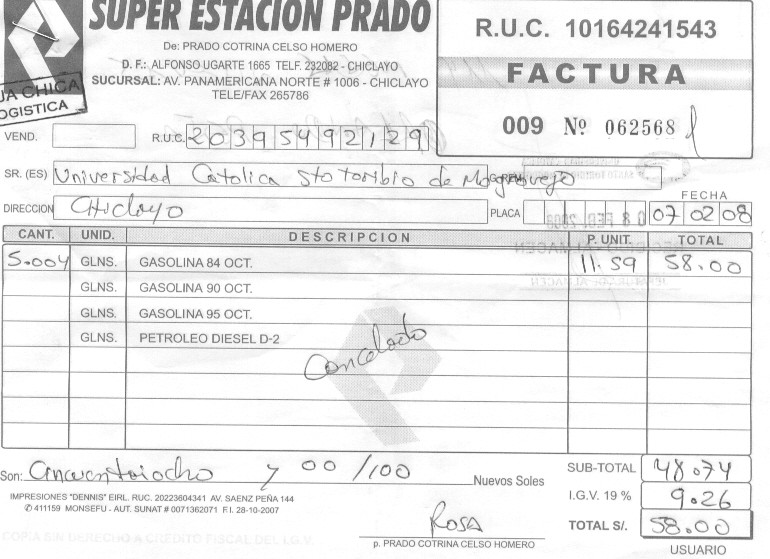 SUPER ESTACION PRADO
De: PRADO COTRINA CELSO HOMERO
D. F.: ALFONSO UGARTE 1665 TELF. 232082 - CHICLAYO
SUCURSAL: AV. PANAMERICANA NORTE # 1006 - CHICLAYO
TELE/FAX 265786
R.U.C. 10164241543
FACTURA
009 Nº 062568
CHICA
OGISTICA
VEND. R.U.C. 20395492129
SR. (ES) Universidad Catolica Sto toribio de Mogrovejo
FECHA
DIRECCION CHiclayo PLACA 07 02 08
CANT. UNID. DESCRIPCION P. UNIT. TOTAL
5.004 GLNS. GASOLINA 84 OCT. 11.59 58.00
GLNS. GASOLINA 90 OCT.
GLNS. GASOLINA 95 OCT.
GLNS. PETROLEO DIESEL D-2
Cancelado
Son: Cincuentaiocho y 00/100 Nuevos Soles
SUB-TOTAL 48.74
I.G.V. 19 % 9.26
TOTAL S/. 58.00
IMPRESIONES "DENNIS" EIRL. RUC. 20223604341 AV. SAENZ PEÑA 144
✆ 411159 MONSEFU - AUT. SUNAT # 0071362071 F.I. 28-10-2007
Rosa
p. PRADO COTRINA CELSO HOMERO
USUARIO